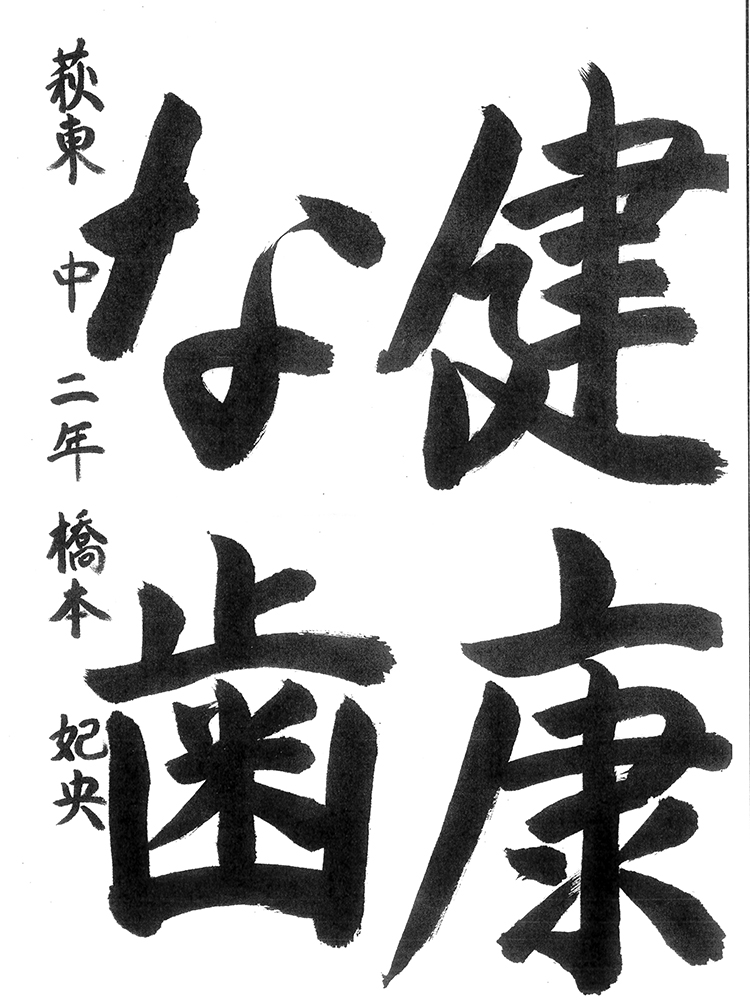 健康
な歯
萩東中二年橋本妃央